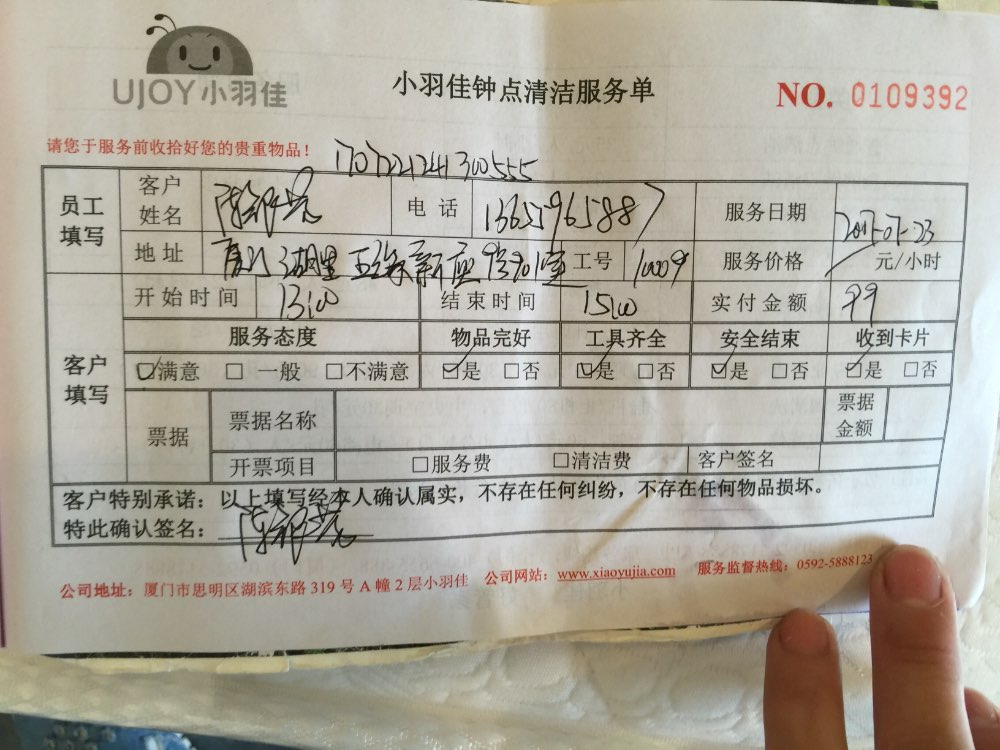 UJOY小羽佳
小羽佳钟点清洁服务单
NO. 0109392
请您于服务前收拾好您的贵重物品！
1707221241300555
员工填写
客户姓名 陈 电话 13655965887 服务日期 2017-07-23
地址 湖里 新座 901室 工号 10009 服务价格 元/小时
客户填写
开始时间 13:00 结束时间 15:00 实付金额 99
服务态度 物品完好 工具齐全 安全结束 收到卡片
☑满意 □一般 □不满意 ☑是 □否 ☑是 □否 ☑是 □否 ☑是 □否
票据 票据名称 票据金额
开票项目 □服务费 □清洁费 客户签名
客户特别承诺：以上填写经本人确认属实，不存在任何纠纷，不存在任何物品损坏。
特此确认签名：陈
公司地址：厦门市思明区湖滨东路319号A幢2层小羽佳 公司网站：www.xiaoyujia.com 服务监督热线：0592-5888123